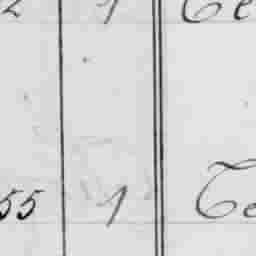 2 1 Te
55 1 Te